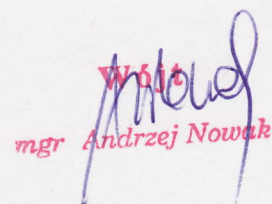 Wójt
mgr Andrzej Nowak